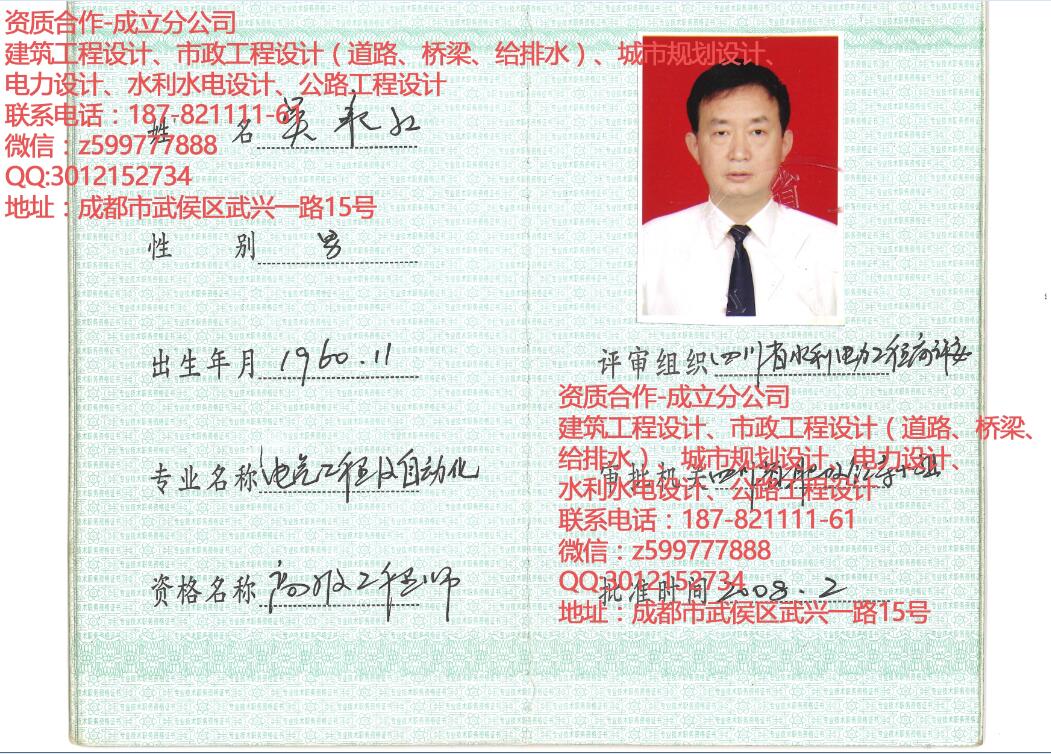 资质合作-成立分公司
建筑工程设计、市政工程设计（道路、桥梁、给排水）、城市规划设计、
电力设计、水利水电设计、公路工程设计
联系电话：187-821111-61
微信：z599777888
QQ:3012152734
地址：成都市武侯区武兴一路15号
姓 名 吴
性 别 男
出生年月 1960.11
专业名称 电气工程及自动化
资格名称 高级工程师
评审组织 四川省水利电力工程高评委
资质合作-成立分公司
建筑工程设计、市政工程设计（道路、桥梁、
给排水）、城市规划设计、电力设计、
水利水电设计、公路工程设计
审批机关 四川省职改领导小组
联系电话：187-821111-61
微信：z599777888
QQ:3012152734
批准时间 2008.2
地址：成都市武侯区武兴一路15号